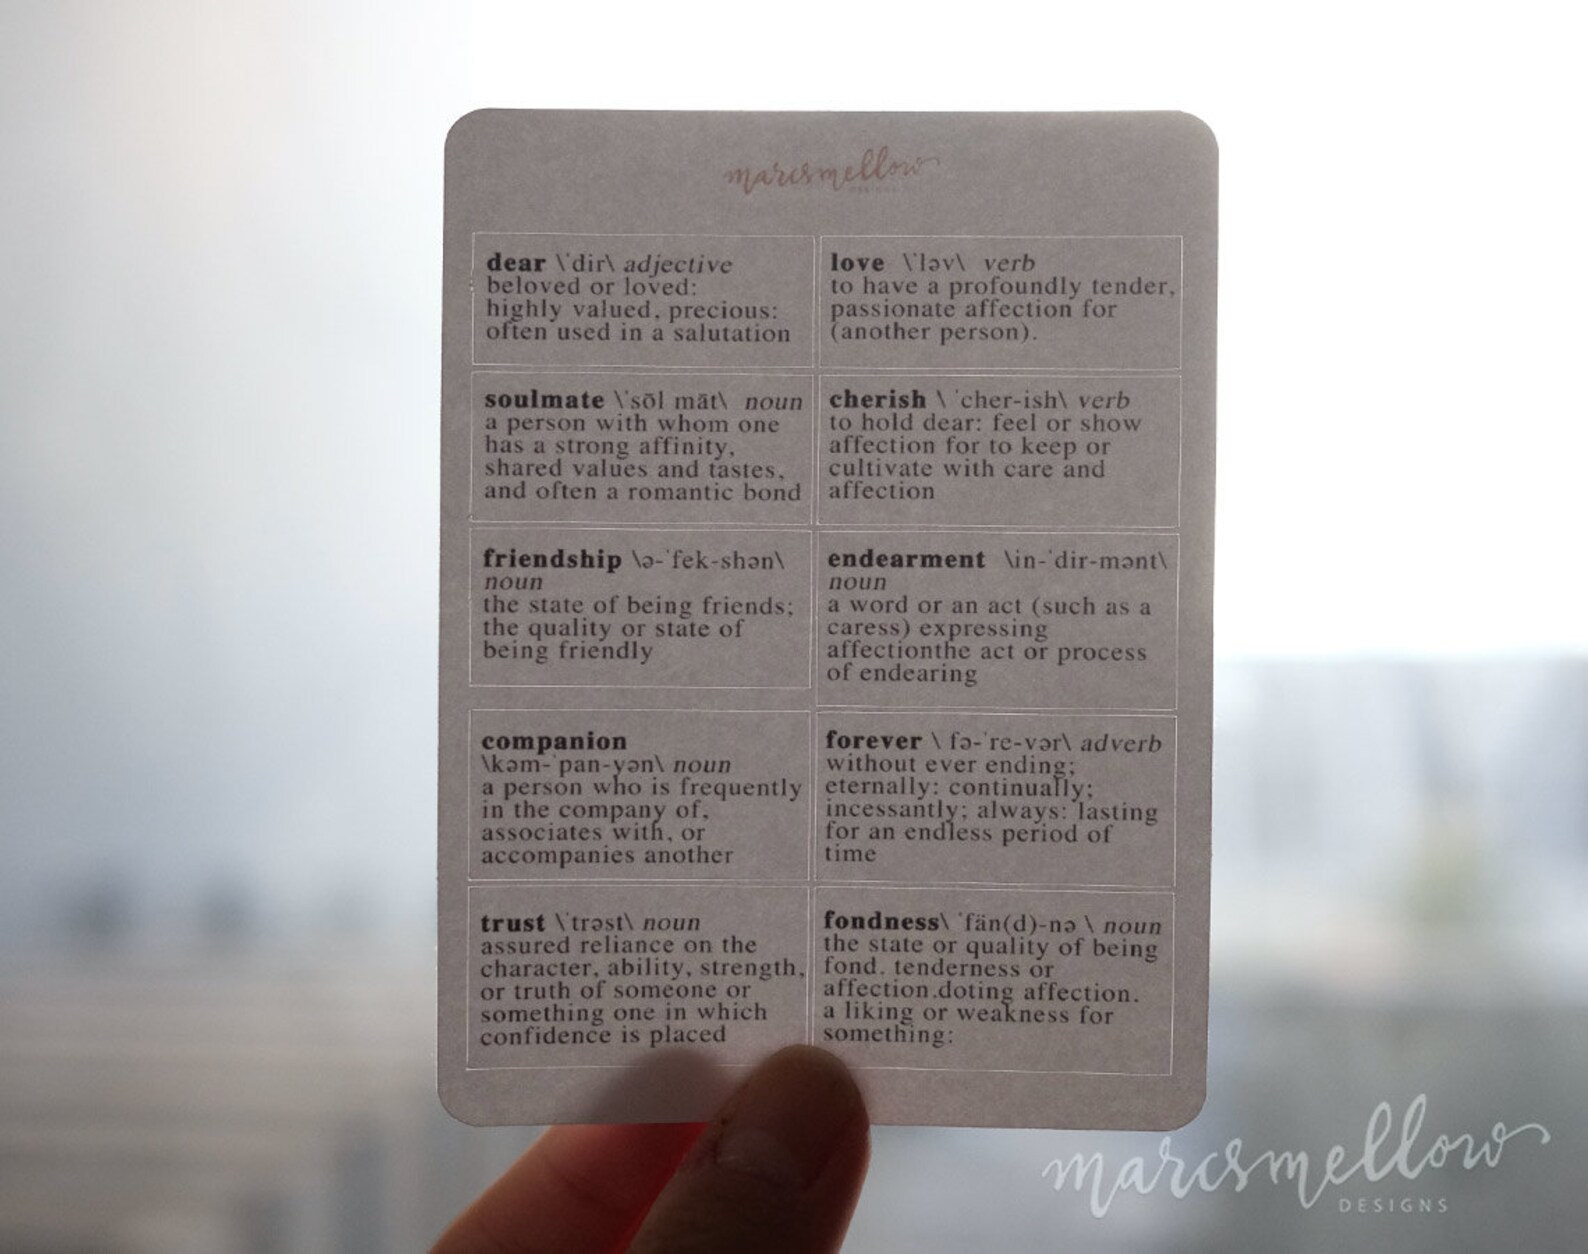 marcsmellow
DESIGNS
dear \ˈdir\ adjective
beloved or loved:
highly valued, precious:
often used in a salutation
love \ˈləv\ verb
to have a profoundly tender,
passionate affection for
(another person).
soulmate \ˈsōl māt\ noun
a person with whom one
has a strong affinity,
shared values and tastes,
and often a romantic bond
cherish \ ˈcher-ish\ verb
to hold dear: feel or show
affection for to keep or
cultivate with care and
affection
friendship \ə-ˈfek-shən\
noun
the state of being friends;
the quality or state of
being friendly
endearment \in-ˈdir-mənt\
noun
a word or an act (such as a
caress) expressing
affectionthe act or process
of endearing
companion
\kəm-ˈpan-yən\ noun
a person who is frequently
in the company of,
associates with, or
accompanies another
forever \ fə-ˈre-vər\ adverb
without ever ending;
eternally: continually;
incessantly; always: lasting
for an endless period of
time
trust \ˈtrəst\ noun
assured reliance on the
character, ability, strength,
or truth of someone or
something one in which
confidence is placed
fondness\ ˈfän(d)-nə \ noun
the state or quality of being
fond. tenderness or
affection.doting affection.
a liking or weakness for
something:
marcsmellow
DESIGNS